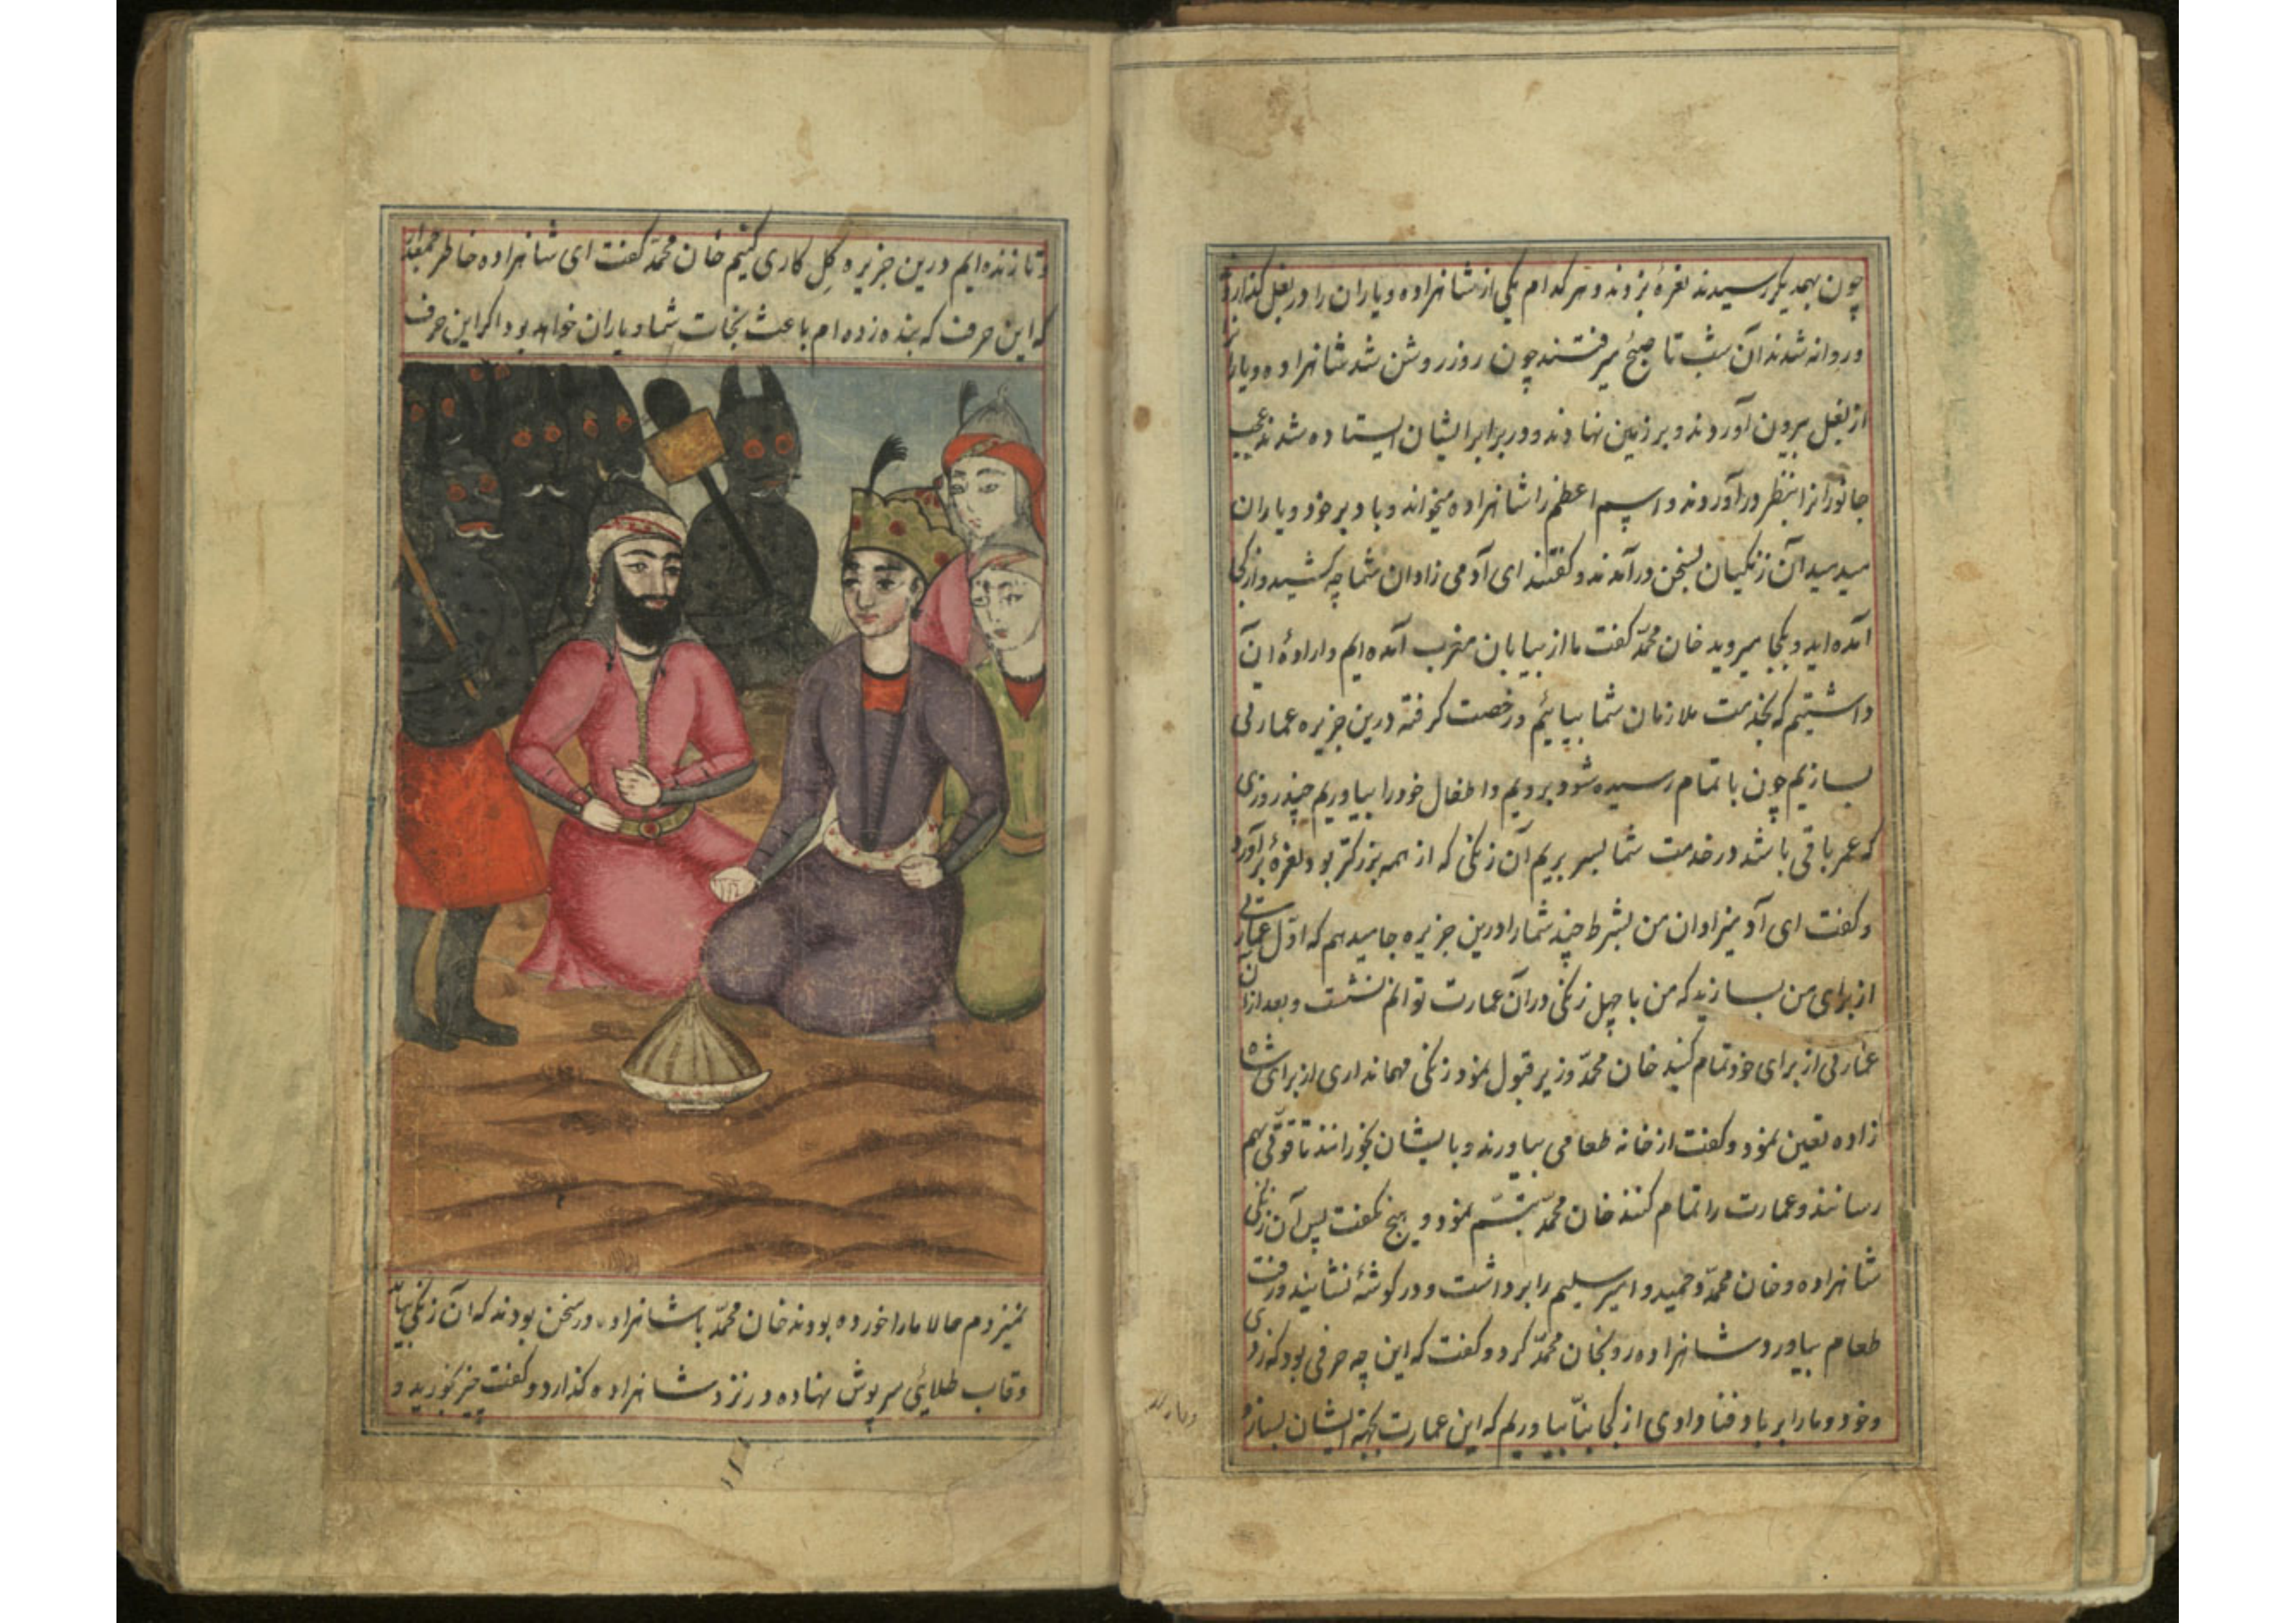 چون بهمدیگر رسیدند نعرهٔ بزدند و هر کدام یکی از شاهزاده و یاران را در بغل گذاردند
و روانه شدند آن شب تا صبح میرفتند چون روز روشن شد شاهزاده و یاران
از بغل بیرون آوردند و بر زمین نهادند و در برابر ایشان ایستاده شدند عجب
جانورانرا بنظر درآوردند و اسم اعظم را شاهزاده میخواند و باد بر خود و یاران
میدمید آن زنکیان بسخن درآمدند و کفتند ای آدمی زادان شما چه کسید و از کجا
آمده اید و بکجا میروید خان محمّد کفت ما از بیابان مغرب آمده ایم و ارادهٔ آن
داشتیم که بخدمت ملازمان شما بیائیم و رخصت کرفته درین جزیره عمارتی
بسازیم چون باتمام رسیده شود برویم و اطفال خود را بیاوریم چند روزی
که عمر باقی باشد در خدمت شما بسر بریم آن زنکی که از همه بزرکتر بود نعرهٔ برآورد
و کفت ای آدمیزادان من بشرط چند شما را درین جزیره جا میدهم که اوّل عمارتی
از برای من بسازید که من با چهل زنکی در آن عمارت توانم نشست و بعد از آن
عمارتی از برای خود تمام کنید خان محمّد وزیر قبول نمود زنکی مهمانداری از برای شاه
زاده تعین نمود و کفت از خانه طعامی بیاورند و بایشان بخورانند تا قوّتی بهم
رسانند و عمارت را تمام کنند خان محمّد تبسّم نمود و هیچ نکفت پس آن زنکی
شاهزاده و خان محمّد و حمید و امیر سلیم را برداشت و در کوشهٔ نشانید و رفت
طعام بیاورد شاهزاده رو بخان محمّد کرد و کفت که این چه حرفی بود که زدی
و خود و ما را بر باد فنا دادی از کجا بنّا بیاوریم که این عمارت بجهة ایشان بسازد
و تا زنده ایم درین جزیره کِل کاری کنیم خان محمّد کفت ای شاهزاده خاطر جمعدار
که این حرف که بنده زده ام باعث نجات شما و یاران خواهد بود اکر این حرف
نمیزدم حالا ما را خورده بودند خان محمّد با شاهزاده در سخن بودند که آن زنکی بیامد
و قاب طلائی سرپوش نهاده در نزد شاهزاده کذارد و کفت خیز بخورید و